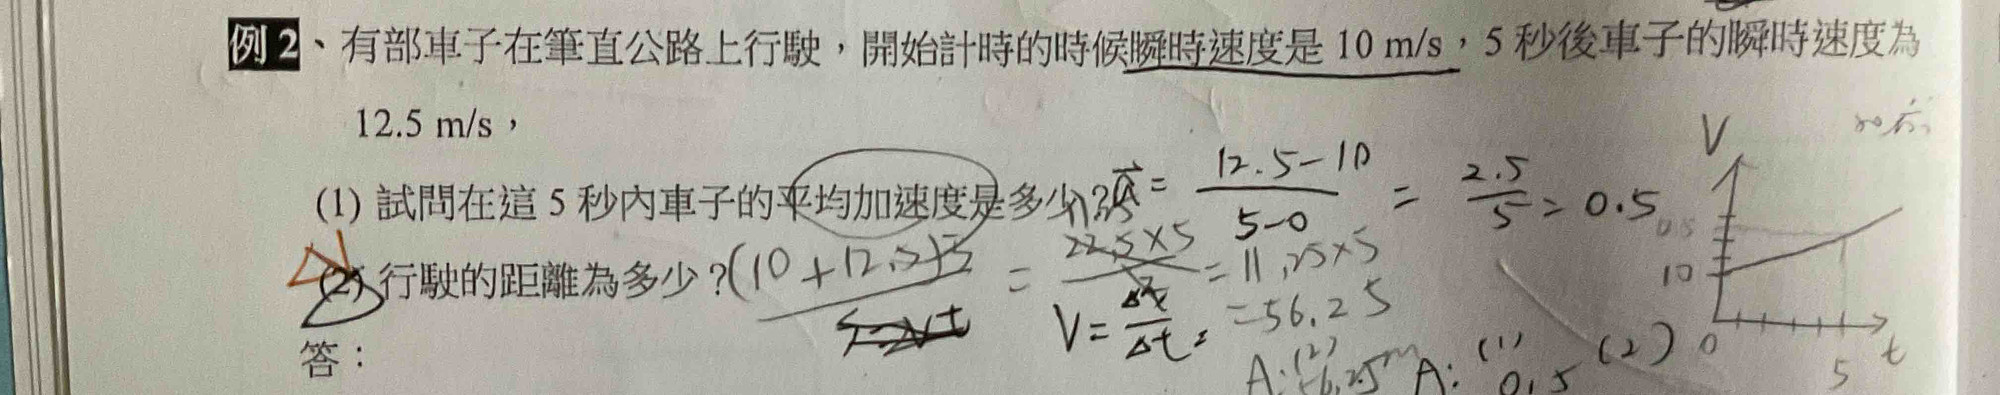 例2、有部車子在筆直公路上行駛，開始計時的時候瞬時速度是 10 m/s，5 秒後車子的瞬時速度為
12.5 m/s，
(1) 試問在這 5 秒內車子的平均加速度是多少？ = 12.5-10 / 5-0 = 2.5 / 5 = 0.5
(2) 行駛的距離為多少？(10+12.5)5 = 22.5×5 / 2 = 11.25×5
V = Δx / Δt
= 56.25
答：
A: (2) 56.25m
A: (1) 0.5 (2)
V
10
0
5
t